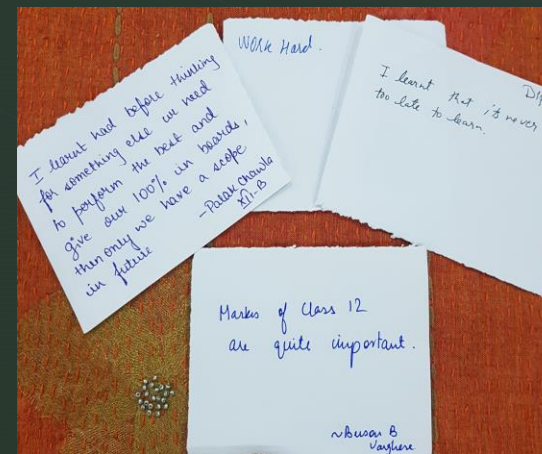 I learnt had before thinking
for something else we need
to perform the best and
give our 100% in boards,
then only we have a scope
in future
-Palak Chawla
XII-B
WORK Hard.
I learnt that it's never
too late to learn.
Marks of Class 12
are quite important.
B
Varghese